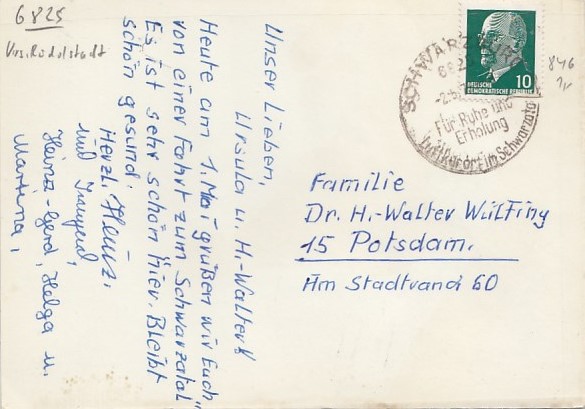 6825
Krs. Rudolstadt
DEUTSCHE
DEMOKRATISCHE REPUBLIK
10
SCHWARZBURG
Für Ruhe und
Erholung
Luftkurort im Schwarzatal
846
Unser Lieben,
Ursula u. H.-Walter
Heute am 1. Mai grüßen wir Euch
von einer Fahrt zum Schwarzatal
Es ist sehr schön hier. Bleibt
schön gesund.
Herzl. Heinz,
und Irmgard,
Heinz-Gerd, Helga u.
Martina,
Familie
Dr. H.-Walter Wülfing
15 Potsdam.
Am Stadtrand 60